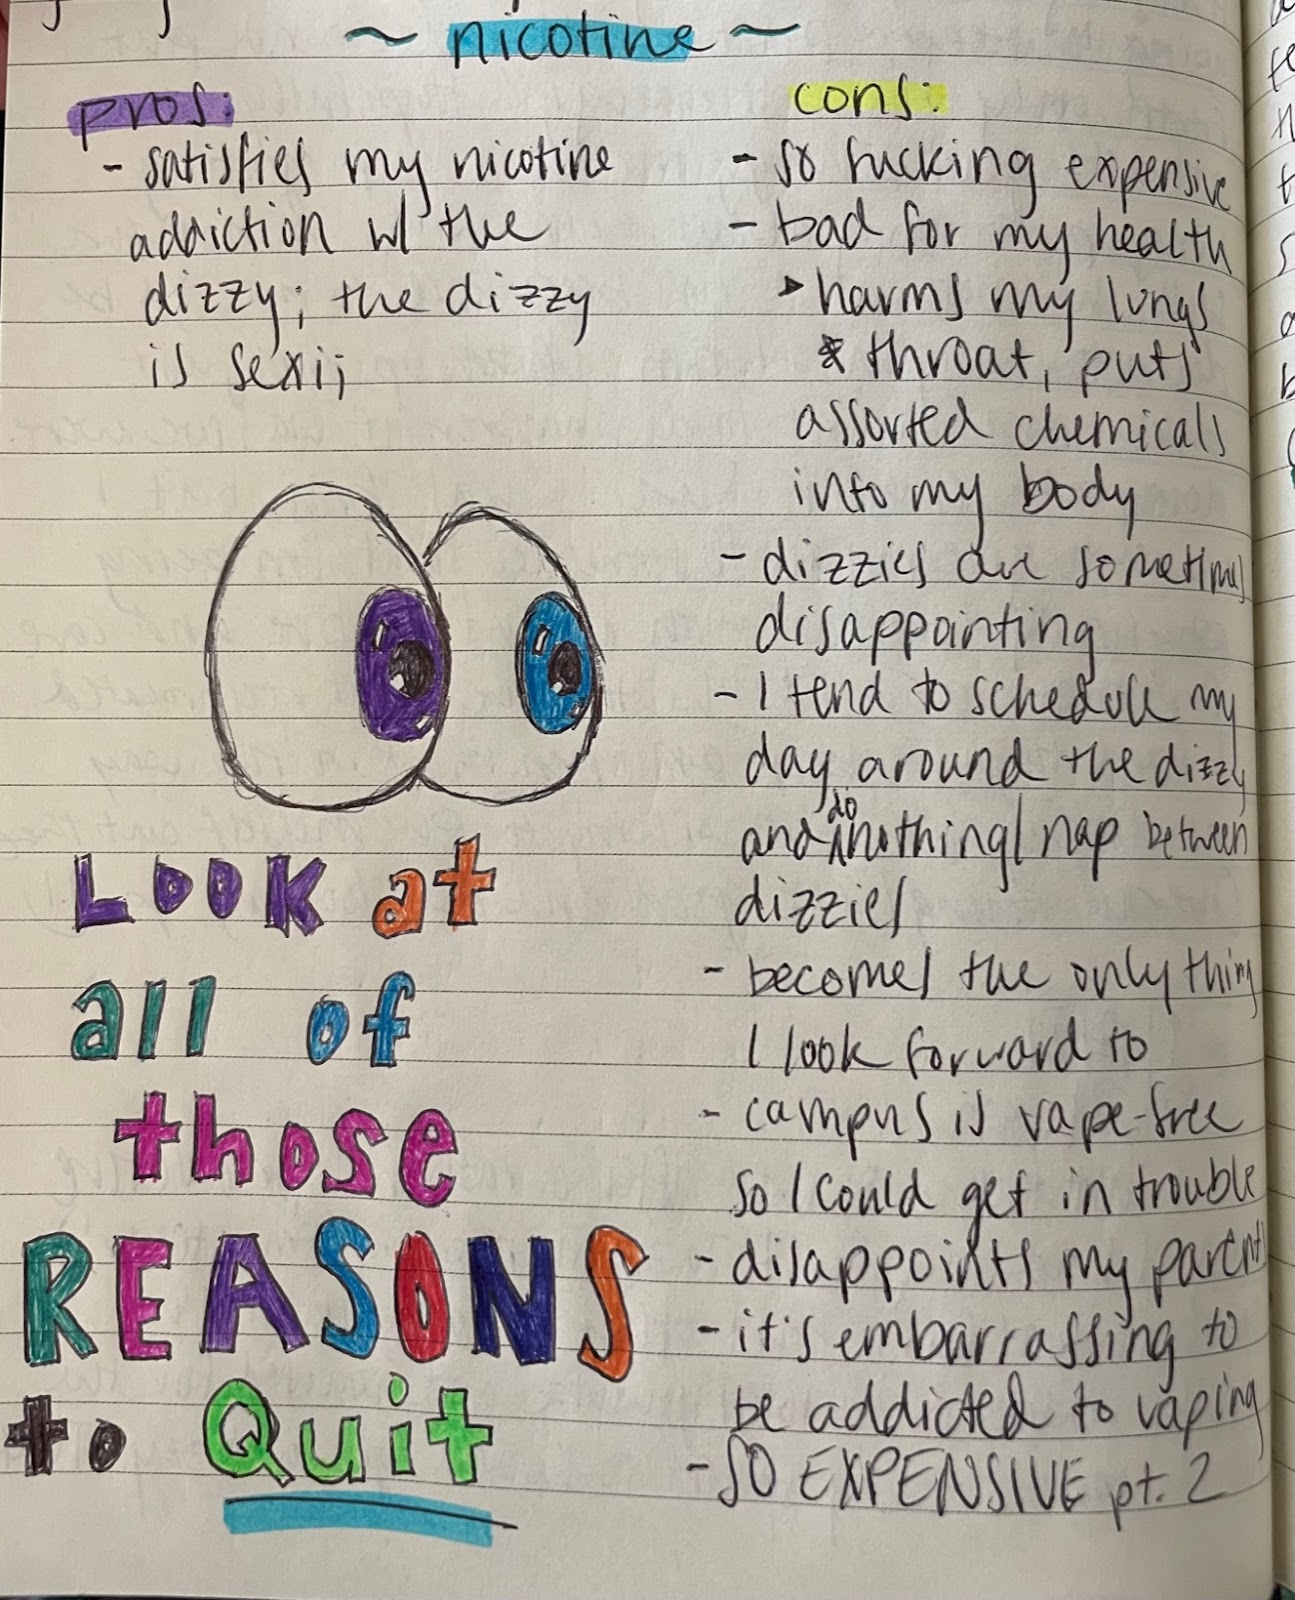 ~ nicotine ~
pros:
- satisfies my nicotine
addiction w/ the
dizzy; the dizzy
is sexii;
Look at
all of
those
REASONS
to Quit
cons:
- so fucking expensive
- bad for my health
‣ harms my lungs
& throat, puts
assorted chemicals
into my body
- dizzies are sometimes
disappointing
- I tend to schedule my
day around the dizzy
and do nothing/nap between
dizzies
- becomes the only thing
I look forward to
- campus is vape-free
so I could get in trouble
- disappoints my parents
- it's embarrassing to
be addicted to vaping
- SO EXPENSIVE pt. 2